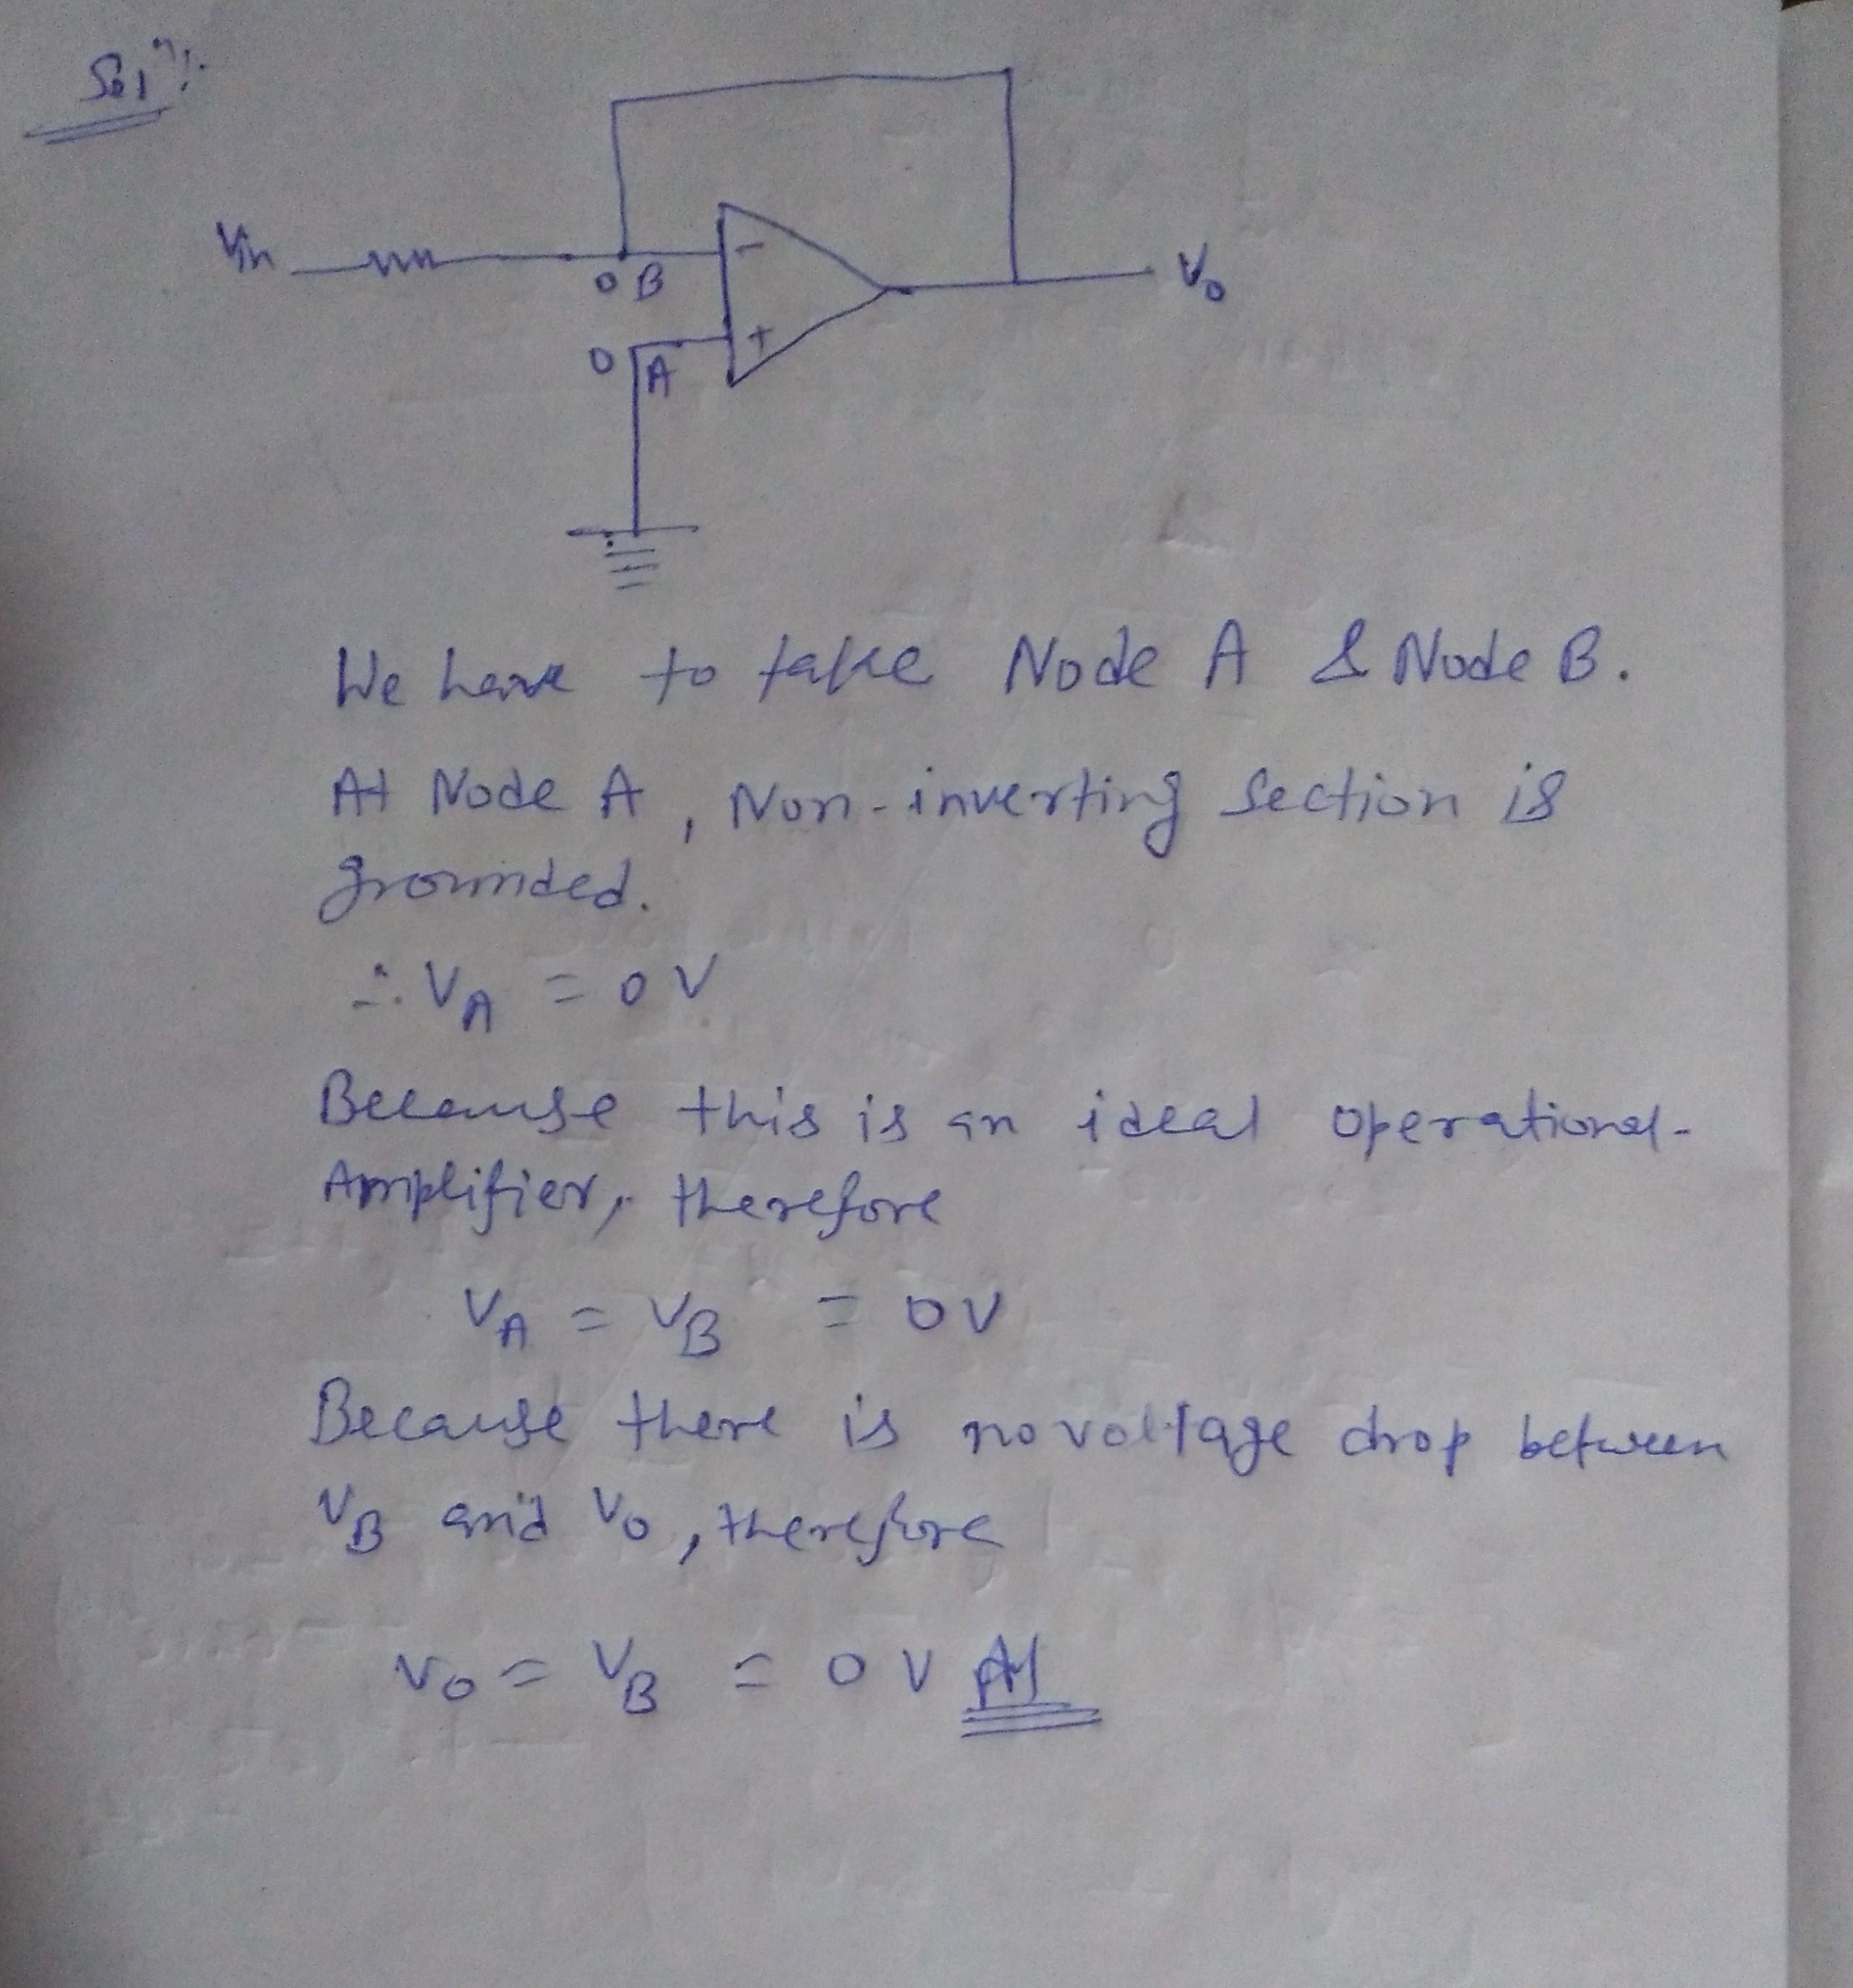 Solⁿ:
Vin
o B
-
Vo
o A
+
We have to take Node A & Node B.
At Node A, Non-inverting section is
grounded.
∴ VA = 0V
Because this is an ideal operational-
Amplifier, therefore
VA = VB = 0V
Because there is no voltage drop between
VB and Vo, therefore
Vo = VB = 0V